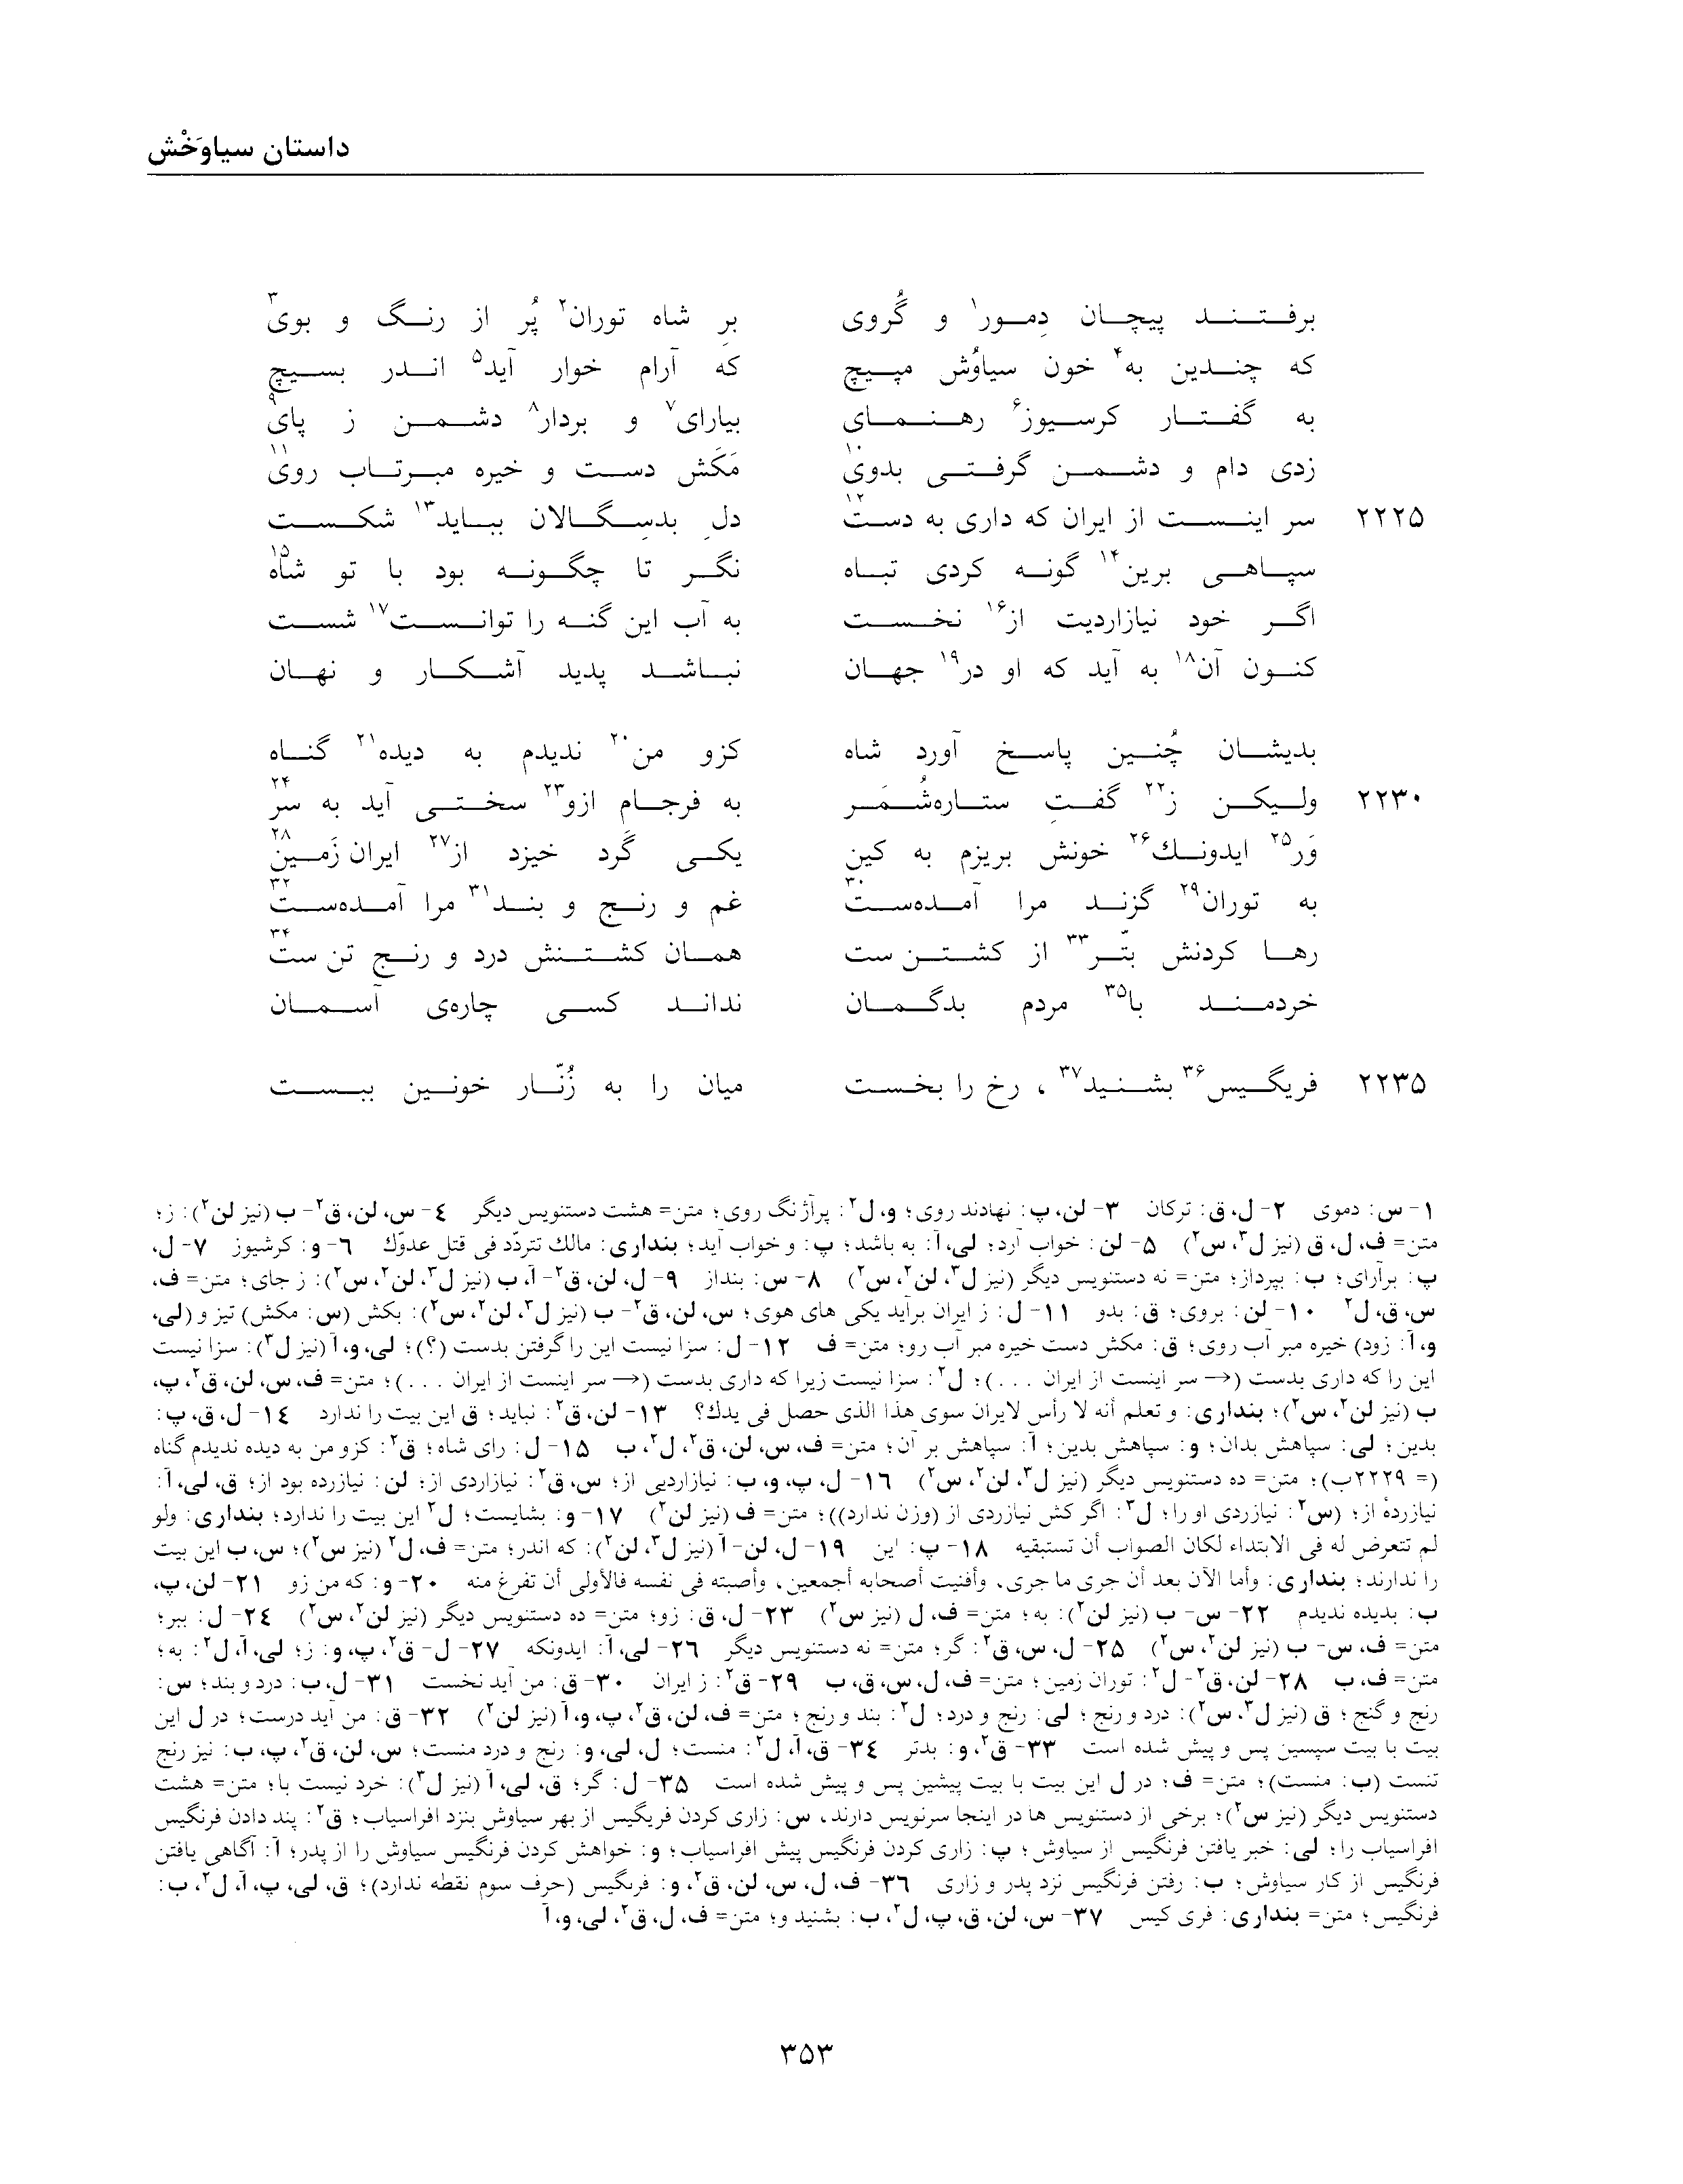 داستان سیاوَخْش
برفتند پیچان دِمور۱ و گُروی بر شاه توران۲ پُر از رنگ و بوی۳
که چندین به۴ خون سیاوُش مپیچ که آرام خوار آید۵ اندر بسیچ
به گفتار کرسیوز۶ رهنمای بیارای۷ و بردار۸ دشمن ز پای۹
زدی دام و دشمن گرفتی بدوی۱۰ مَکَش دست و خیره مبرتاب روی۱۱
۲۲۲۵ سر اینست از ایران که داری به دست۱۲ دلِ بدسگالان بباید۱۳ شکست
سپاهی برین۱۴ گونه کردی تباه نگر تا چگونه بود با تو شاه۱۵
اگر خود نیازاردیت از۱۶ نخست به آب این گنه را توانست۱۷ شست
کنون آن۱۸ به آید که او در۱۹ جهان نباشد پدید آشکار و نهان
بدیشان چُنین پاسخ آورد شاه کزو من۲۰ ندیدم به دیده۲۱ گناه
۲۲۳۰ ولیکن ز۲۲ گفتِ ستاره‌شُمَر به فرجام ازو۲۳ سختی آید به سر۲۴
وَر۲۵ ایدونک۲۶ خونش بریزم به کین یکی گَرد خیزد از۲۷ ایران زَمین۲۸
به توران۲۹ گزند مرا آمده‌ست۳۰ غم و رنج و بند۳۱ مرا آمده‌ست۳۲
رها کردنش بتّر۳۳ از کشتن ست همان کشتنش درد و رنج تن ست۳۴
خردمند با۳۵ مردم بدگمان نداند کسی چاره‌ی آسمان
۲۲۳۵ فریگیس۳۶ بشنید۳۷، رخ را بخست میان را به زُنّار خونین ببست
۱- س: دموی ۲- ل، ق: ترکان ۳- لن، پ: نهادند روی؛ و، ل۲: پرآژنگ روی؛ متن= هشت دستنویس دیگر ٤- س، لن، ق۲- ب (نیز لن۲): ز؛
متن= ف، ل، ق (نیز ل۳، س۲) ۵- لن: خواب آرد؛ لی، آ: به باشد؛ پ: و خواب آید؛ بنداری: مالك تتردّد فی قتل عدوّك ٦- و: کرشیوز ۷- ل،
پ: برآرای؛ ب: بپرداز؛ متن= نه دستنویس دیگر (نیز ل۳، لن۲، س۲) ۸- س: بنداز ۹- ل، لن، ق۲- آ، ب (نیز ل۳، لن۲، س۲): ز جای؛ متن= ف،
س، ق، ل۲ ۱۰- لن: بروی؛ ق: بدو ۱۱- ل: ز ایران برآید یکی های هوی؛ س، لن، ق۲- ب (نیز ل۳، لن۲، س۲): بکش (س: مکش) تیز و (لی،
و، آ: زود) خیره مبر آب روی؛ ق: مکش دست خیره مبر آب رو؛ متن= ف ۱۲- ل: سزا نیست این را گرفتن بدست (؟)؛ لی، و، آ (نیز ل۳): سزا نیست
این را که داری بدست (→ سر اینست از ایران ...)؛ ل۲: سزا نیست زیرا که داری بدست (→ سر اینست از ایران ...)؛ متن= ف، س، لن، ق۲، پ،
ب (نیز لن۲، س۲)؛ بنداری: و تعلم أنه لا رأس لایران سوی هذا الذی حصل فی یدك؟ ۱۳- لن، ق۲: نباید؛ ق این بیت را ندارد ۱٤- ل، ق، پ:
بدین؛ لی: سپاهش بدان؛ و: سپاهش بدین؛ آ: سپاهش بر آن؛ متن= ف، س، لن، ق۲، ل۲، ب ۱۵- ل: رای شاه؛ ق۲: کزو من به دیده ندیدم گناه
(= ۲۲۲۹ب)؛ متن= ده دستنویس دیگر (نیز ل۳، لن۲، س۲) ۱٦- ل، پ، و، ب: نیازاردیی از؛ س، ق۲: نیازاردی از؛ لن: نیازرده بود از؛ ق، لی، آ:
نیازردهٔ از؛ (س۲: نیازردی او را؛ ل۳: اگر کش نیازردی از (وزن ندارد))؛ متن= ف (نیز لن۲) ۱۷- و: بشایست؛ ل۲ این بیت را ندارد؛ بنداری: ولو
لم تتعرض له فی الابتداء لکان الصواب أن تستبقیه ۱۸- پ: این ۱۹- ل، لن- آ (نیز ل۳، لن۲): که اندر؛ متن= ف، ل۲ (نیز س۲)؛ س، ب این بیت
را ندارند؛ بنداری: وأما الآن بعد أن جری ما جری، وأفنیت أصحابه أجمعین، وأصبته فی نفسه فالأولی أن تفرغ منه ۲۰- و: که من زو ۲۱- لن، پ،
ب: بدیده ندیدم ۲۲- س- ب (نیز لن۲): به؛ متن= ف، ل (نیز س۲) ۲۳- ل، ق: زو؛ متن= ده دستنویس دیگر (نیز لن۲، س۲) ۲٤- ل: ببر؛
متن= ف، س- ب (نیز لن۲، س۲) ۲۵- ل، س، ق۲: گر؛ متن= نه دستنویس دیگر ۲٦- لی، آ: ایدونکه ۲۷- ل- ق۲، پ، و: ز؛ لی، آ، ل۲: به؛
متن= ف، ب ۲۸- لن، ق۲- ل۲: توران زمین؛ متن= ف، ل، س، ق، ب ۲۹- ق۲: ز ایران ۳۰- ق: من آید نخست ۳۱- ل، ب: درد و بند؛ س:
رنج و گنج؛ ق (نیز ل۳، س۲): درد و رنج؛ لی: رنج و درد؛ ل۲: بند و رنج؛ متن= ف، لن، ق۲، پ، و، آ (نیز لن۲) ۳۲- ق: من آید درست؛ در ل این
بیت با بیت سپسین پس و پیش شده است ۳۳- ق۲، و: بدتر ۳٤- ق، آ، ل۲: منست؛ ل، لی، و: رنج و درد منست؛ س، لن، ق۲، پ، ب: نیز رنج
تنست (ب: منست)؛ متن= ف؛ در ل این بیت با بیت پیشین پس و پیش شده است ۳۵- ل: گر؛ ق، لی، آ (نیز ل۳): خرد نیست با؛ متن= هشت
دستنویس دیگر (نیز س۲)؛ برخی از دستنویس ها در اینجا سرنویس دارند، س: زاری کردن فریگیس از بهر سیاوش بنزد افراسیاب؛ ق۲: پند دادن فرنگیس
افراسیاب را؛ لی: خبر یافتن فرنگیس از سیاوش؛ پ: زاری کردن فرنگیس پیش افراسیاب؛ و: خواهش کردن فرنگیس سیاوش را از پدر؛ آ: آگاهی یافتن
فرنگیس از کار سیاوش؛ ب: رفتن فرنگیس نزد پدر و زاری ۳٦- ف، ل، س، لن، ق۲، و: فرىگیس (حرف سوم نقطه ندارد)؛ ق، لی، پ، آ، ل۲، ب:
فرنگیس؛ متن= بنداری: فری کیس ۳۷- س، لن، ق، پ، ل۲، ب: بشنید و؛ متن= ف، ل، ق۲، لی، و، آ
۳۵۳